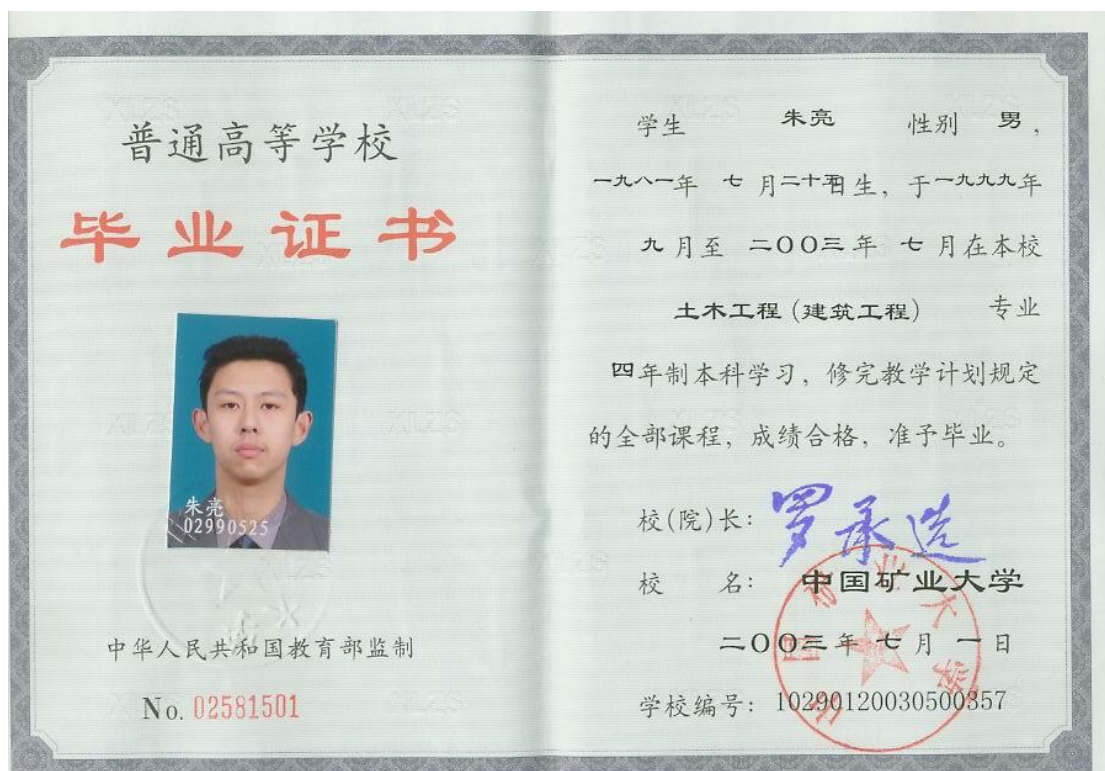 普通高等学校
毕业证书
朱亮
02990525
中华人民共和国教育部监制
No. 02581501
学生 朱亮 性别 男，
一九八一年 七 月二十五日生，于一九九九年
九 月至 二〇〇三 年 七 月在本校
土木工程（建筑工程） 专业
四年制本科学习，修完教学计划规定
的全部课程，成绩合格，准予毕业。
校(院)长：罗承选
校 名：中国矿业大学
二〇〇三 年 七 月 一 日
学校编号：10290120030500357
中国矿业大学
XLZS